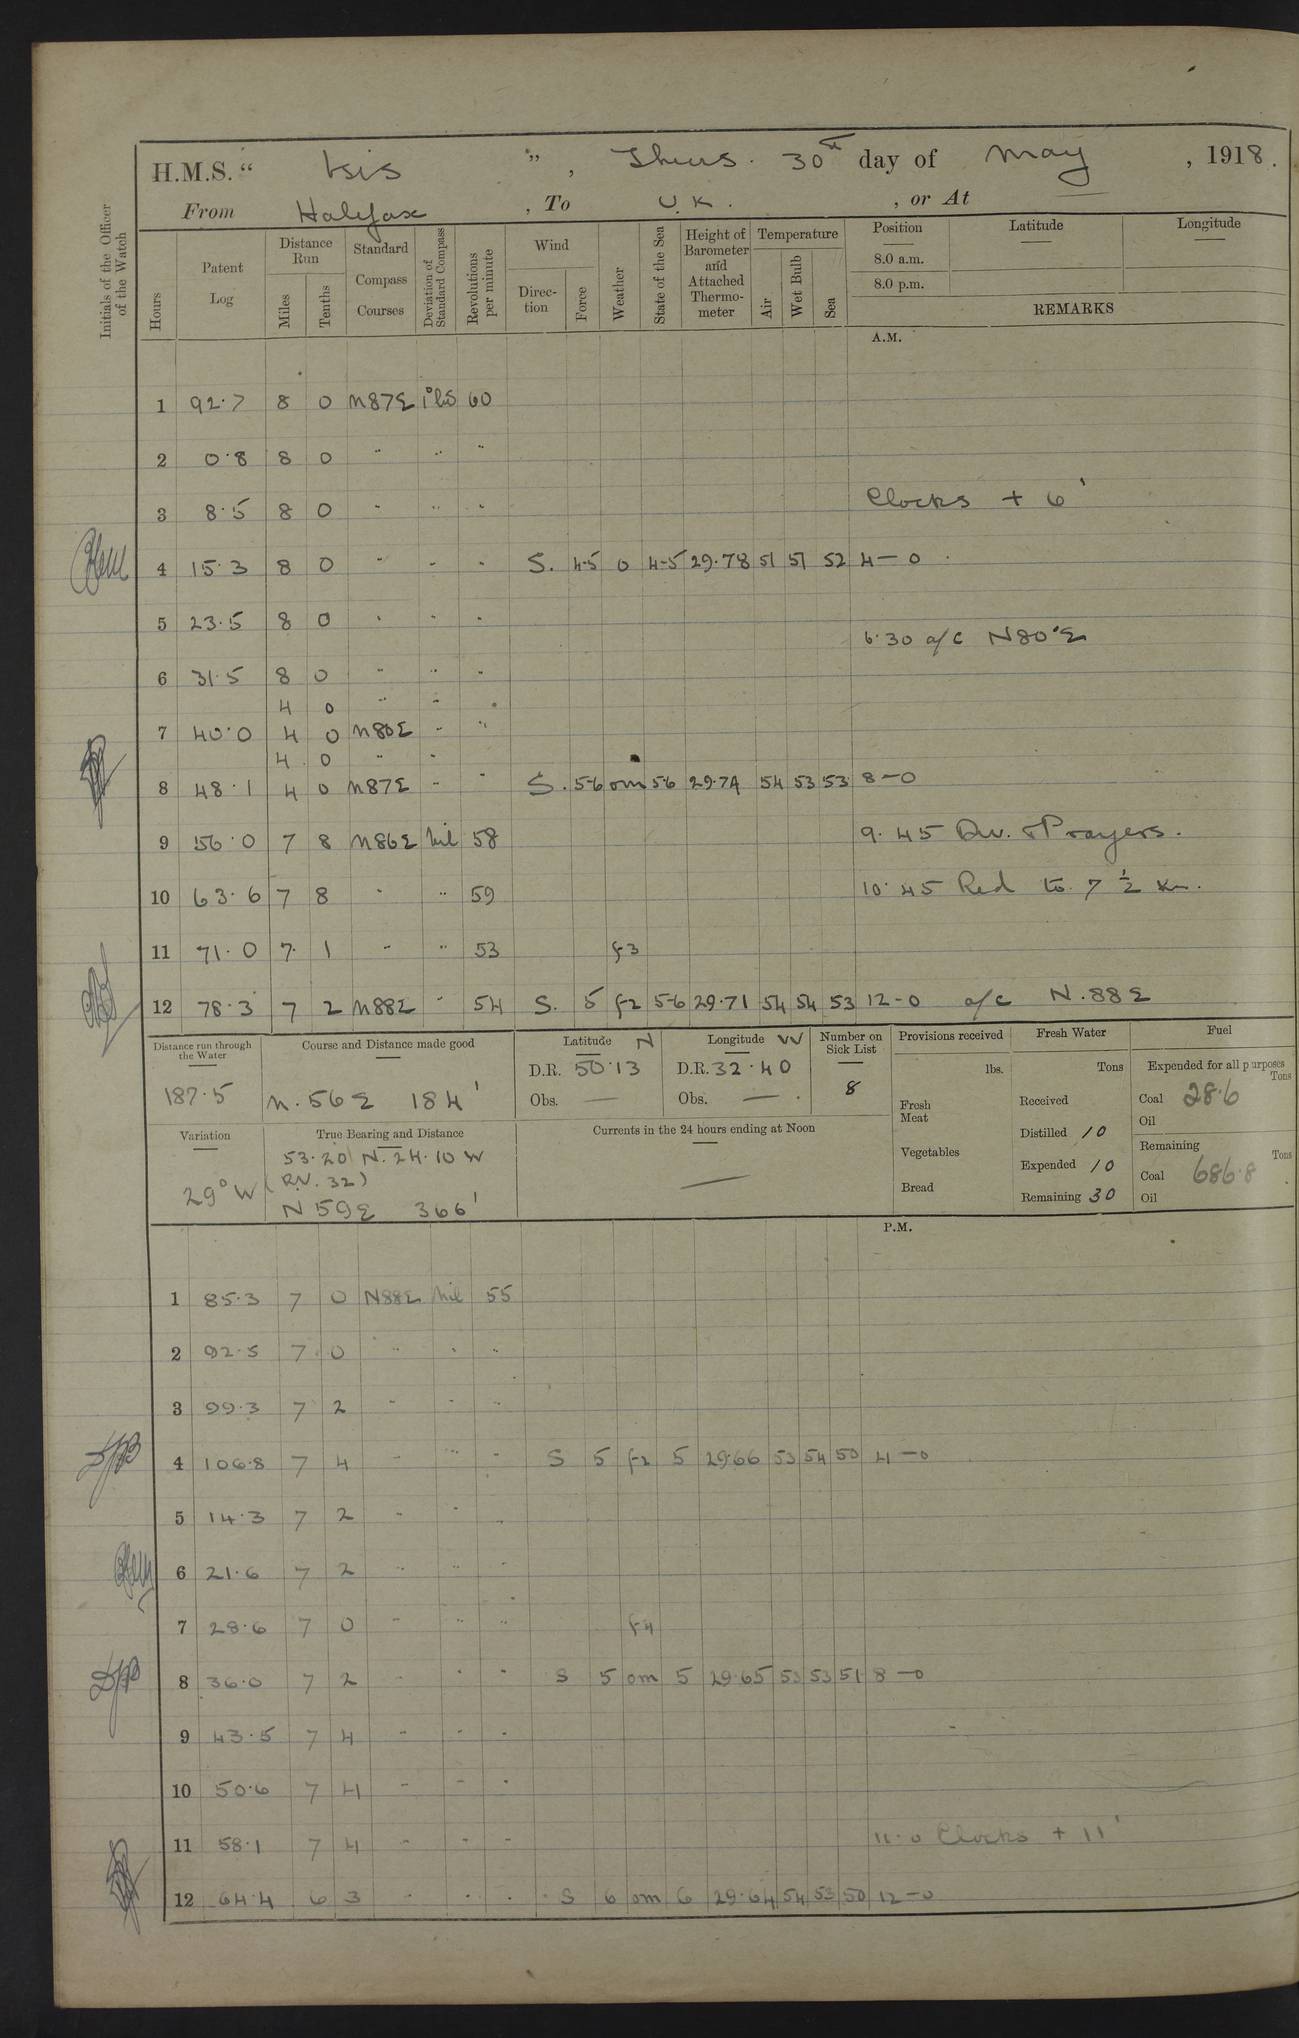 H.M.S. “ Isis ”, Thurs. 30th day of May, 1918.
From Halifax, To U.K., or At
Initials of the Officer of the Watch
Hours
Patent Log
Distance Run
Miles
Tenths
Standard Compass Courses
Deviation of Standard Compass
Revolutions per minute
Wind
Direction
Force
Weather
State of the Sea
Height of Barometer and Attached Thermometer
Temperature
Air
Wet Bulb
Sea
Position
Latitude
Longitude
8.0 a.m.
8.0 p.m.
REMARKS
A.M.
1 92.7 8 0 N87E 60
2 0.8 8 0 " " "
Clocks + 6'
3 8.5 8 0 " " "
4 15.3 8 0 " " " S. 4-5 o 4-5 29.78 51 51 52 4-0
5 23.5 8 0 " " "
6.30 a/c N80°E
6 31.5 8 0 " " "
4 0 " " "
7 40.0 4 0 N80E " "
4 0 " "
8 48.1 4 0 N87E " " S. 5-6 om 5-6 29.74 54 53 53 8-0
9 56.0 7 8 N86E Nil 58 9.45 Div. & Prayers.
10 63.6 7 8 " " 59 10.45 Red to 7 ½ Kn.
11 71.0 7 1 " " 53 f3
12 78.3 7 2 N88E " 54 S. 5 f2 5-6 29.71 54 54 53 12-0 a/c N.88E
Distance run through the Water
187.5
Course and Distance made good
N.56E 184'
Latitude N
D.R. 50.13
Obs. —
Longitude W
D.R. 32.40
Obs. —
Number on Sick List
8
Provisions received
lbs.
Fresh Meat
Vegetables
Bread
Fresh Water
Tons
Received
Distilled 10
Expended 10
Remaining 30
Fuel
Expended for all purposes
Tons
Coal 28.6
Oil
Remaining
Tons
Coal 686.8
Oil
Variation
29° W
True Bearing and Distance
53.20 N. 24.10 W
(RV. 32)
N 59E 366'
Currents in the 24 hours ending at Noon
—
P.M.
1 85.3 7 0 N88E Nil 55
2 92.5 7 0 " " "
3 99.3 7 2 " " "
4 106.8 7 4 " " " S 5 f2 5 29.66 53 54 50 4-0
5 14.3 7 2 " " "
6 21.6 7 2 " " "
7 28.6 7 0 " " " f4
8 36.0 7 2 " " " S 5 om 5 29.65 53 53 51 8-0
9 43.5 7 4 " " "
10 50.6 7 4 " " "
11 58.1 7 4 " " " 11.0 Clocks + 11'
12 64.4 6 3 " " " S 6 om 6 29.64 54 53 50 12-0